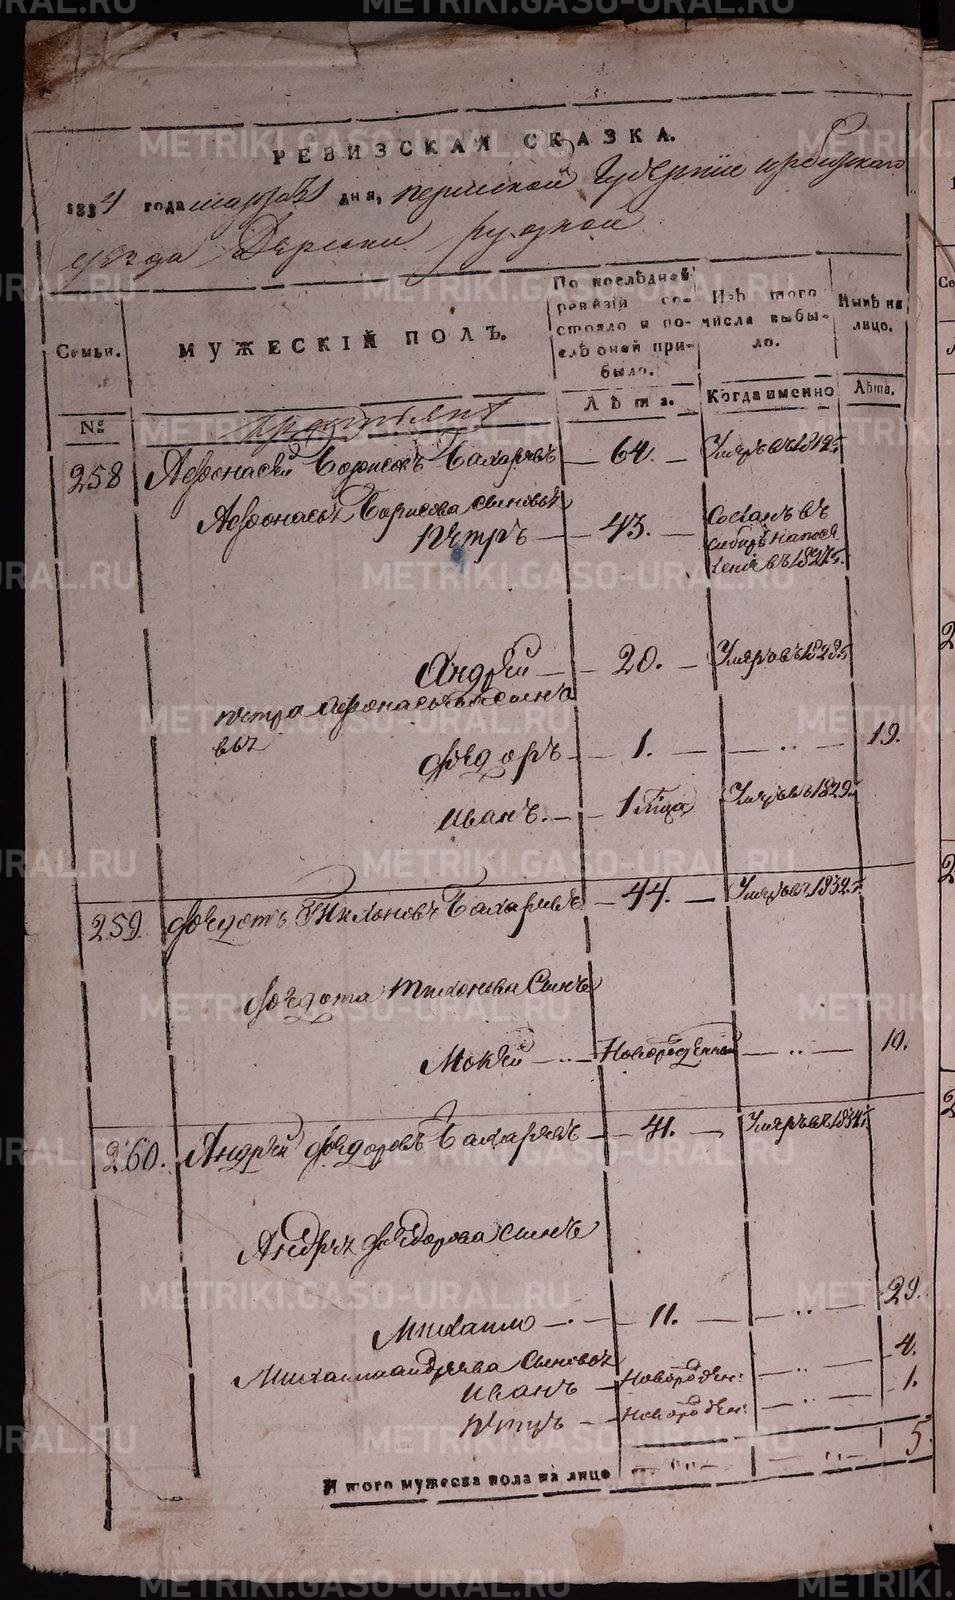 РЕВИЗСКАЯ СКАЗКА.
1834 года марта 31 дня, пермской Губернiи ирбицкаго
уезда Деревни рудной
Семьи. МУЖЕСКIЙ ПОЛЪ. По послѣдней ревизiи состояло и послѣ оней прибыло. Изъ того числа выбыло. Нынѣ на лицо.
№ Лѣта. Когда именно Лѣта.
крестьянъ
258 Афонасей Борисовъ Бахаревъ 64. Умеръ въ 1812.
Афонасья Борисова сыновья
Петръ 43. Сосланъ въ
сибирь на посе
ленiе въ 1827.
Андрей 20. Умеръ въ 1828
Петра Афонасьева сыно
вья
Фёдоръ 1. 19.
Иванъ. 1 Года Умеръ въ 1829.
259 Федотъ Тихоновъ Бахаревъ 44. Умеръ въ 1832.
Федота Тихонова Сынъ
Мокей Новорожденной 10.
260. Андрей Федоровъ Бахаревъ 41. Умеръ въ 1834
Андрея Федорова сынъ
Михаило 11. 29.
Михаила андреева Сыновья
Иванъ Новорожден: 4.
Петръ Новорожден: 1.
Итого мужеска пола на лицо 5.
METRIKI.GASO-URAL.RU